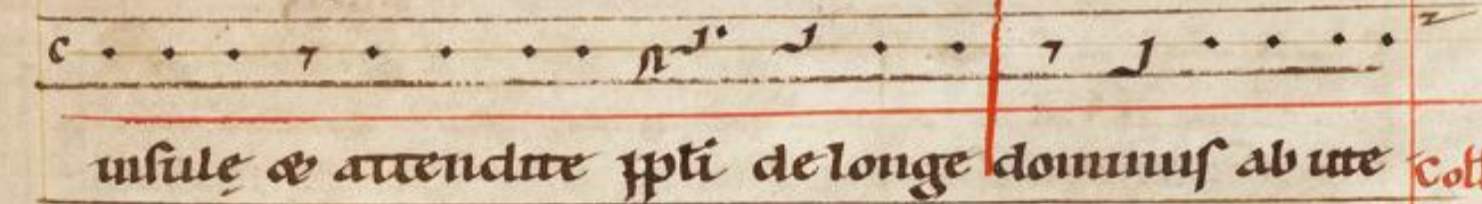 insulę & attendite ppli de longe dominus ab ute Coll